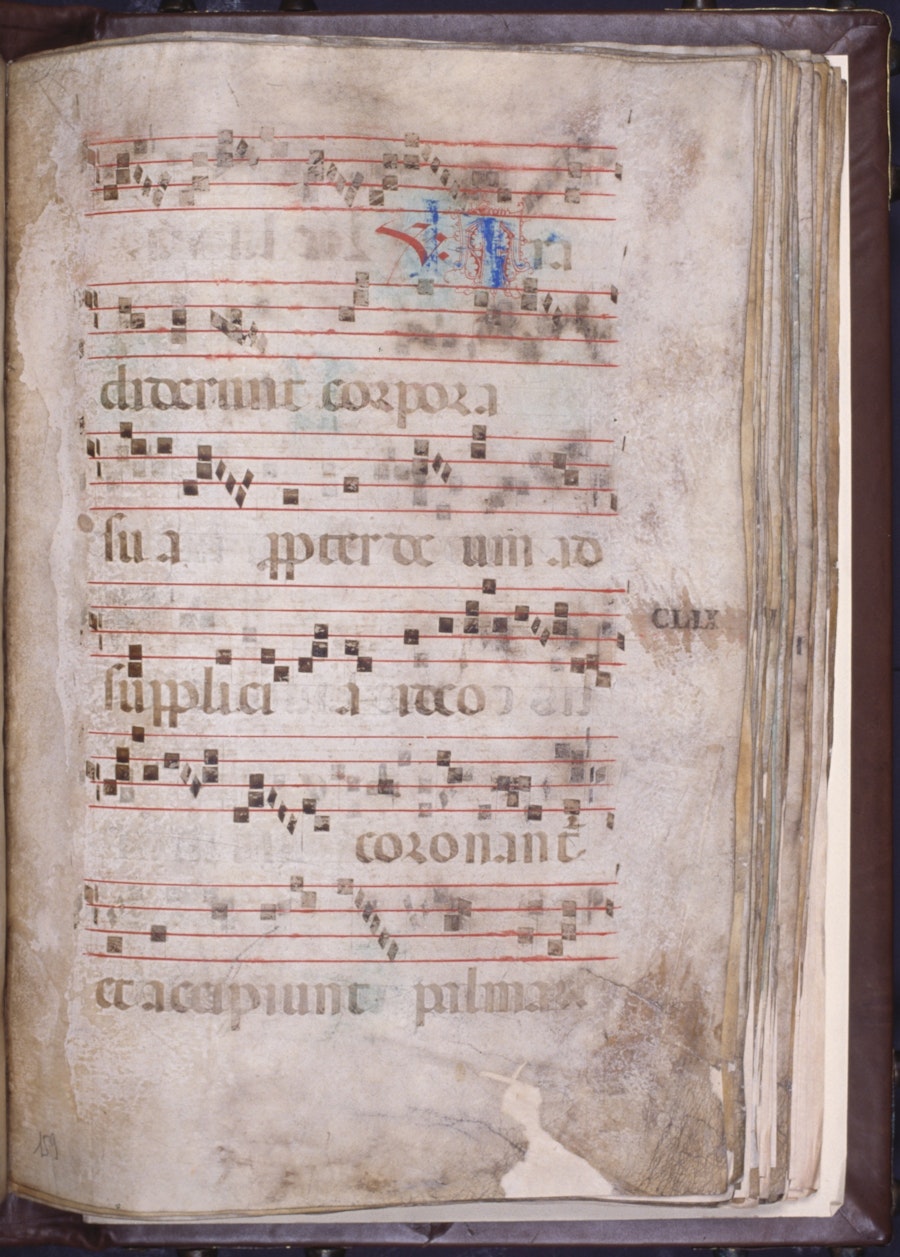 ℣ Tra
diderunt corpora
su a ꝓpter de um ad
supplici a ideo
CLIX
coronant̃
et accipiunt palmam
159